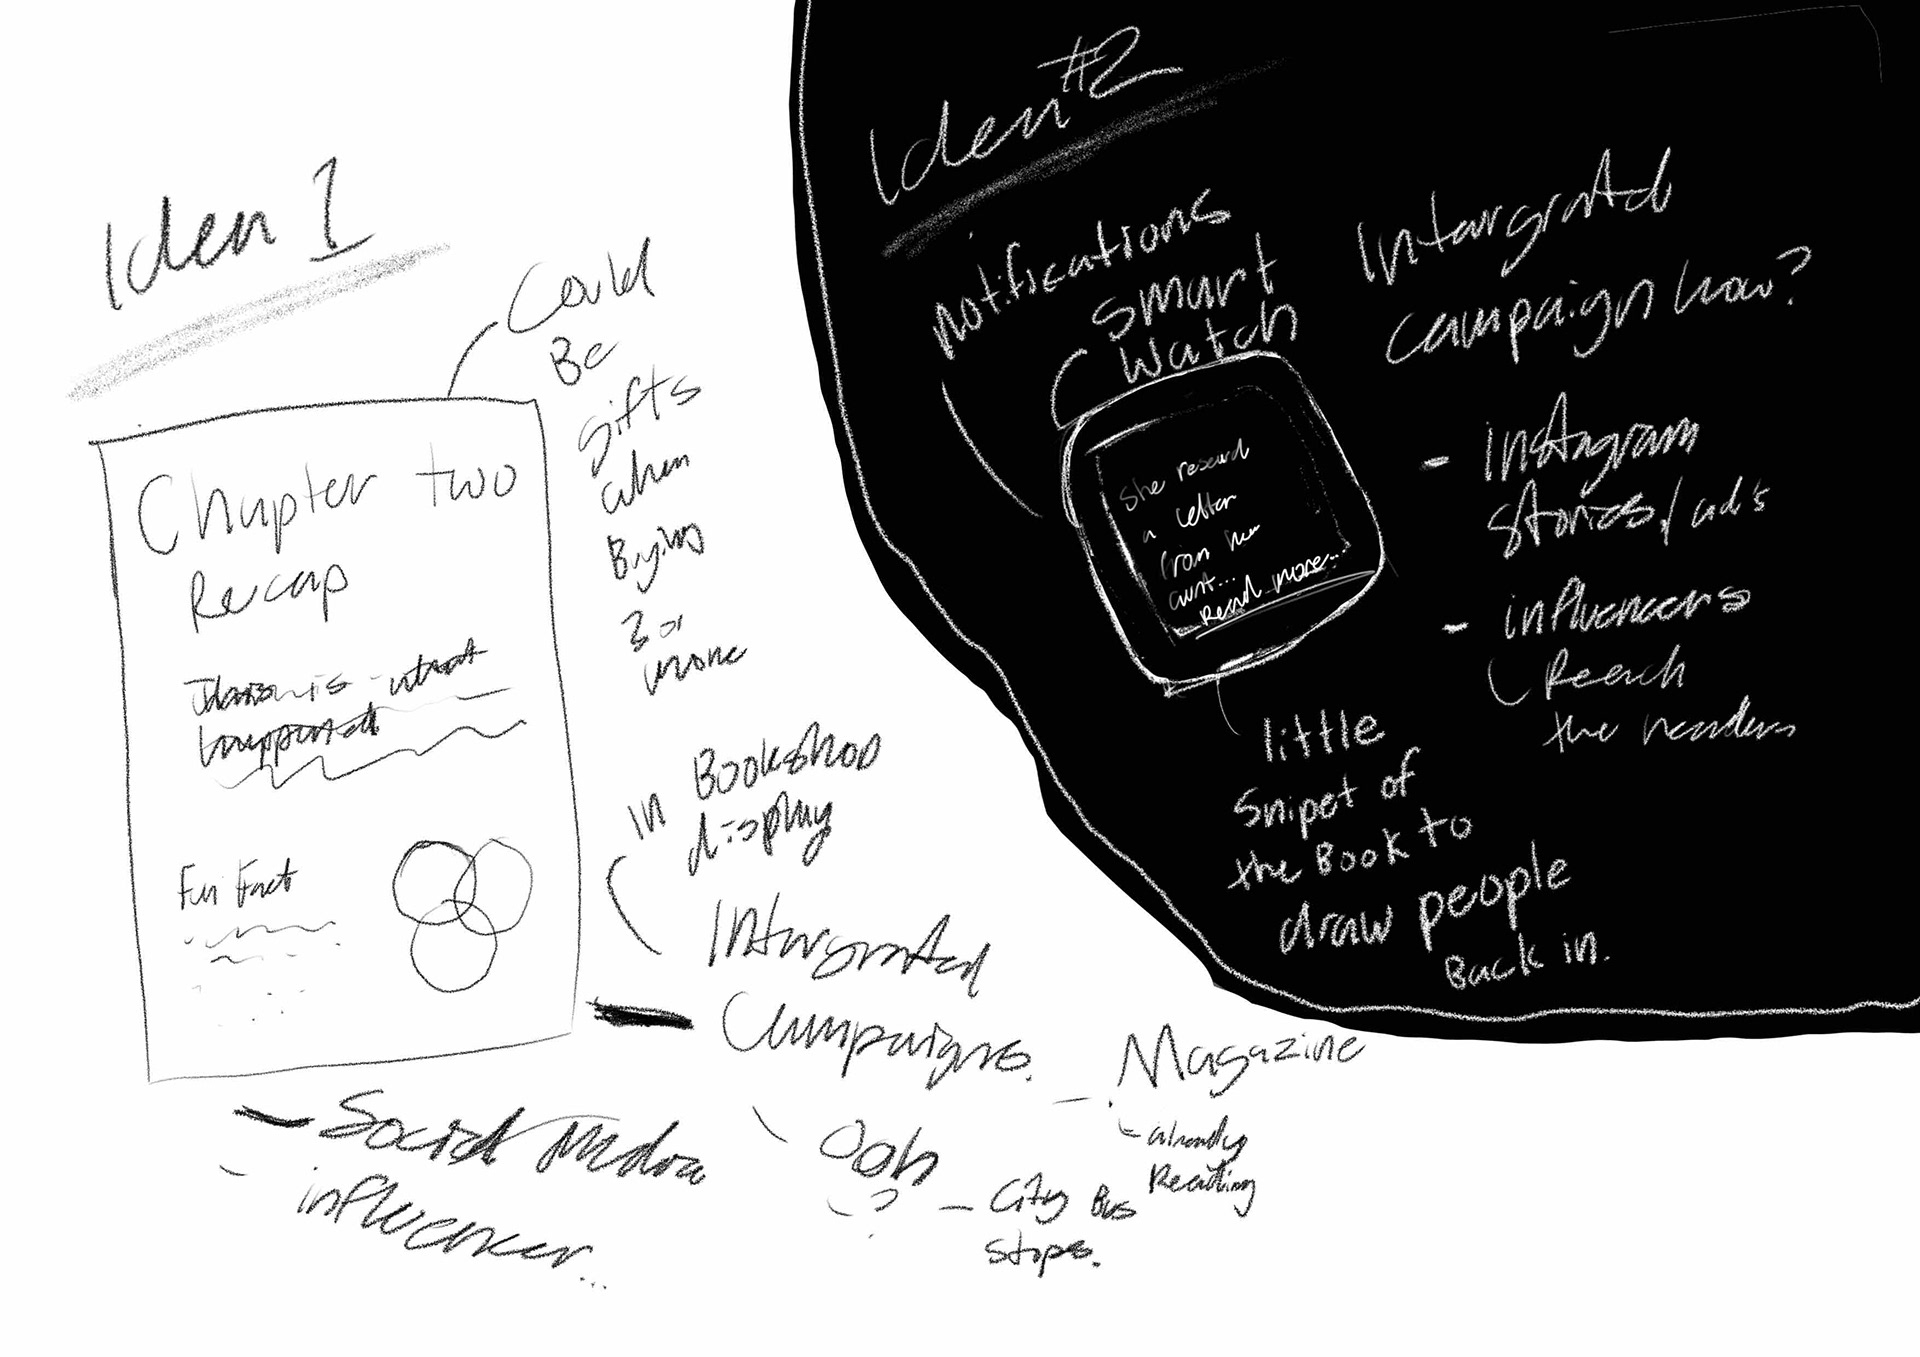 Idea 1
Could
Be
gifts
when
Buying
3 or
more
Chapter two
Recap
what
happened
Fun Fact
in Bookshop
display
Intergrated
Campaigns.
Social Media
influencer...
Ooh
?
City Bus
Stops.
Magazine
already
Reading
Idea #2
notifications
Smart
Watch
She
a letter
from her
aunt...
Read more...
little
Snipet of
the Book to
draw people
Back in.
Intergrated
Campaign how?
- instagram
Stories/ad's
- influencers
Reach
the readers